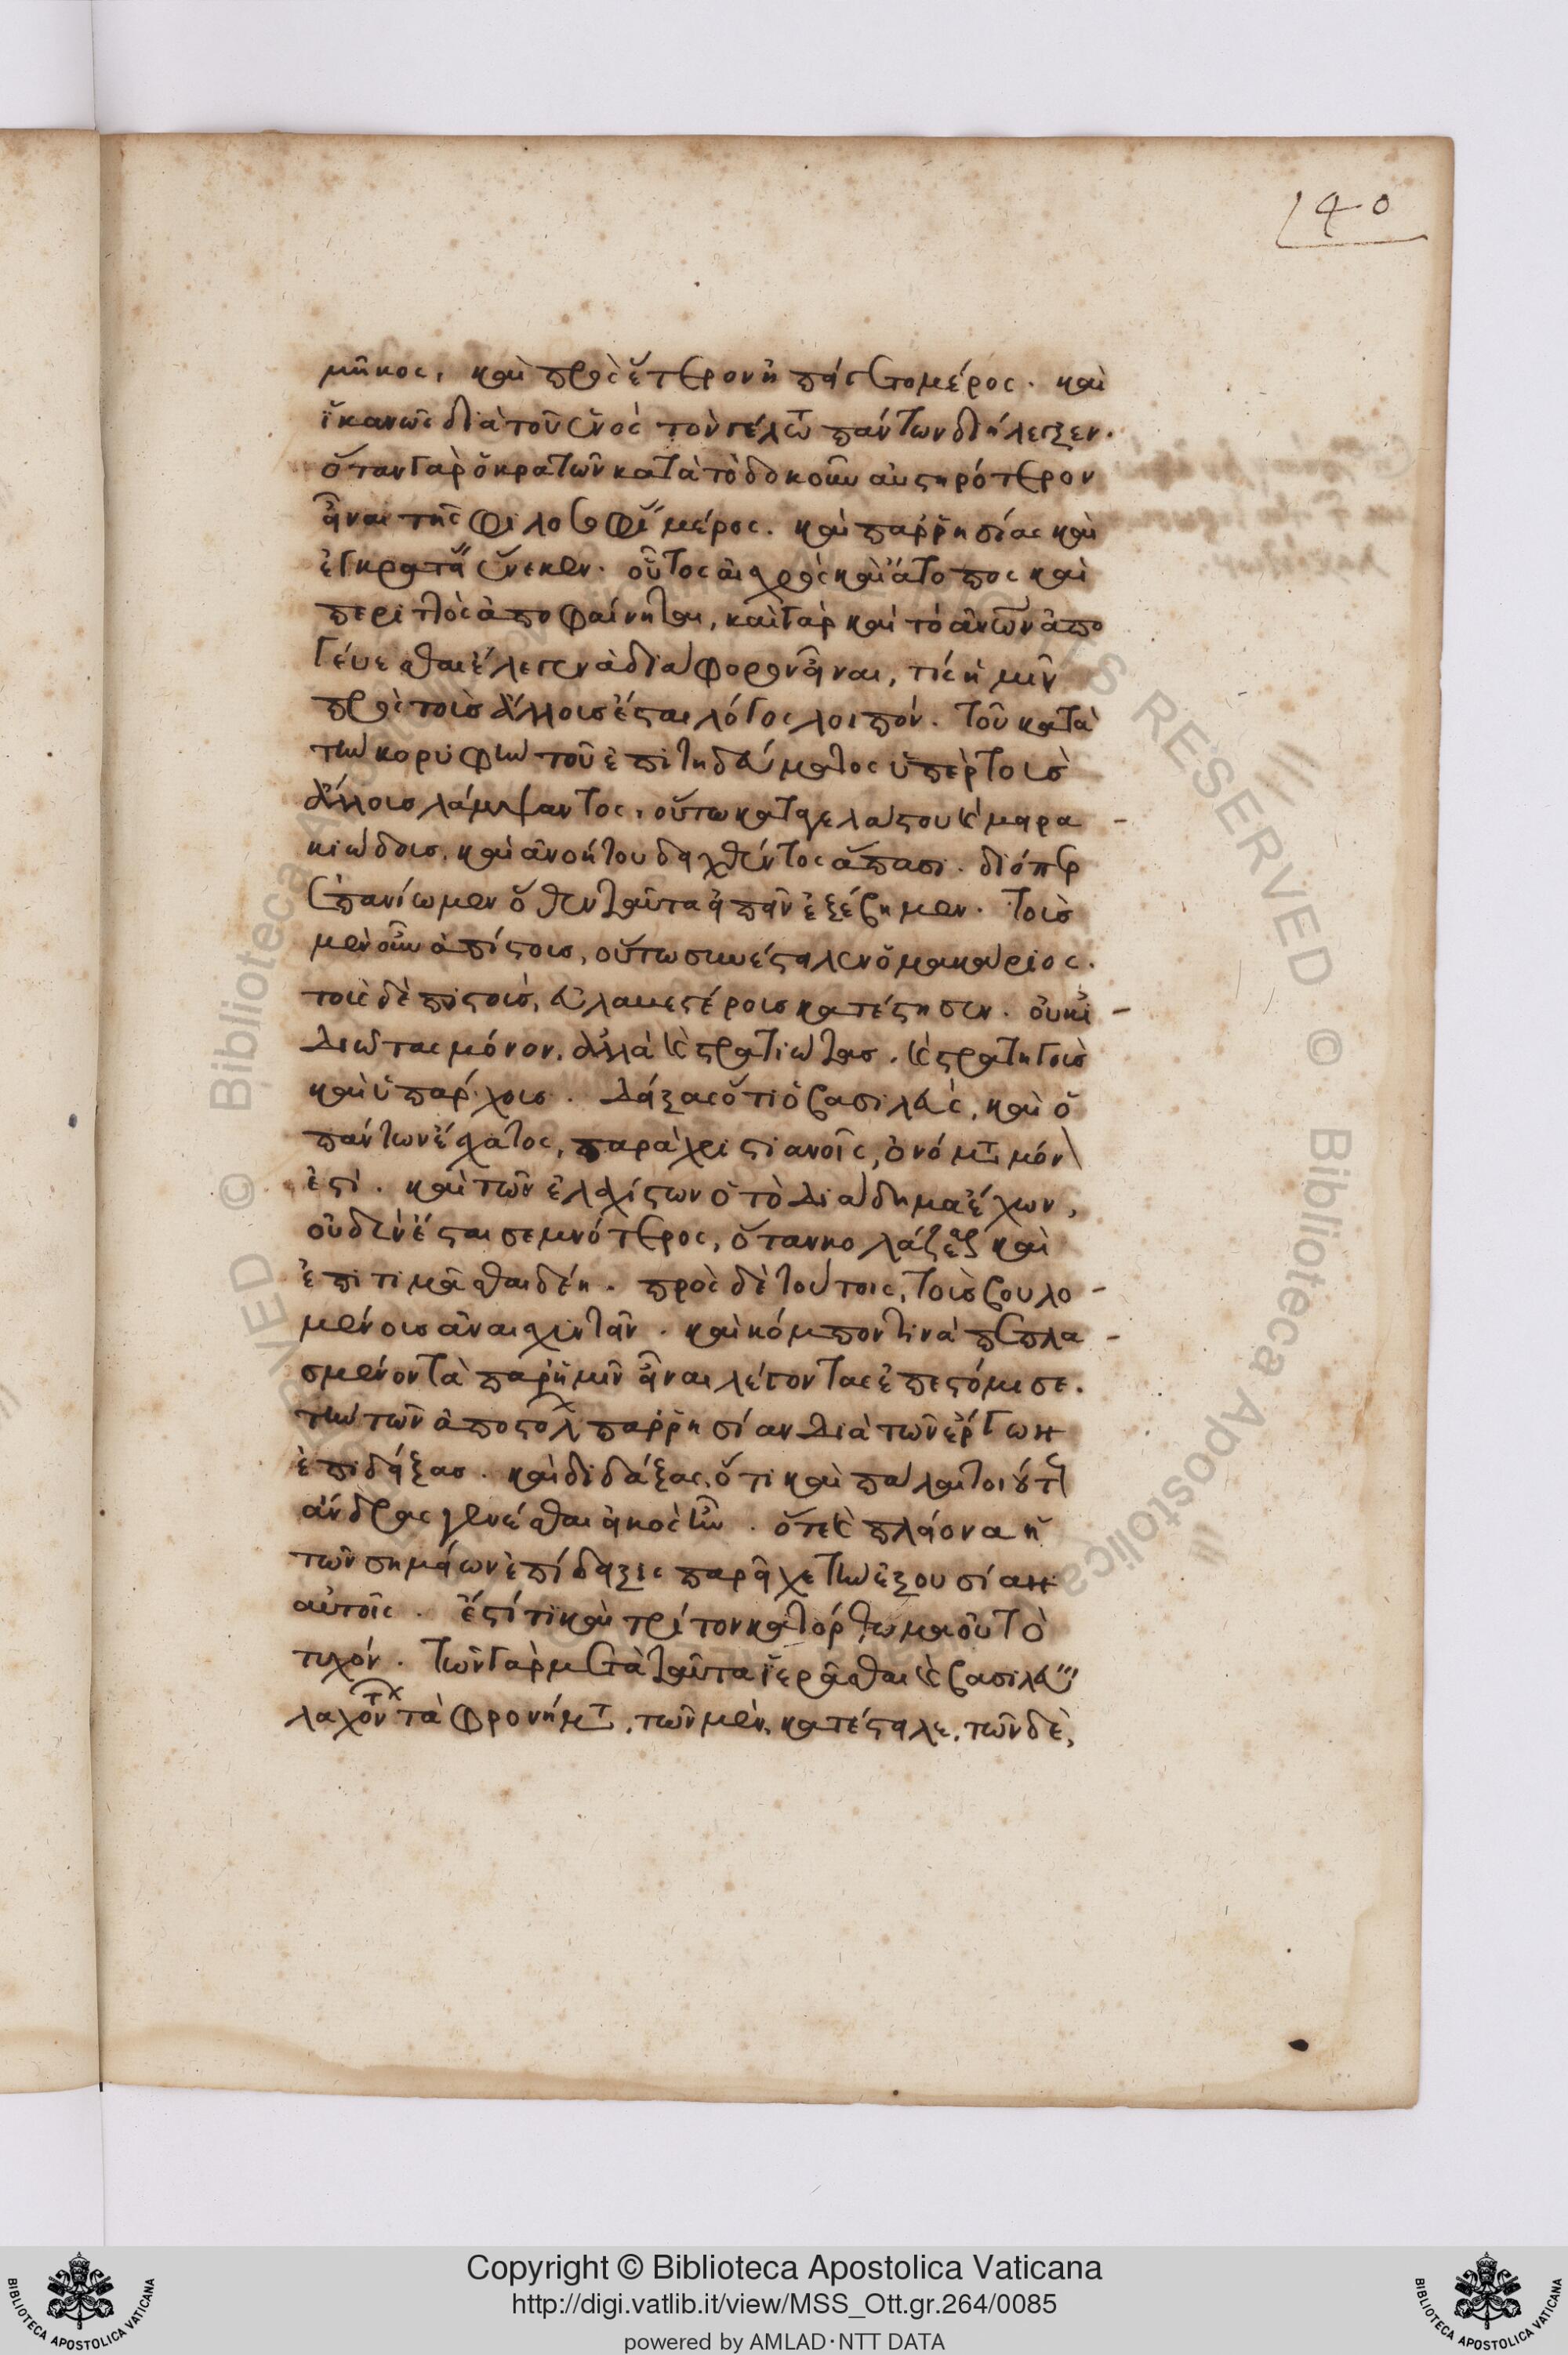 140
μῆκος, καὶ πρὸς ἕτερον ἡμᾶς τὸ μέρος. καὶ
ἱκανῶς διὰ τοῦ ἑνὸς τὸν γέλωτ πάντων διήλεγξεν.
ὅταν γὰρ ὁ κρατῶν κατὰ τὸ δοκοῦν αὐστηρότερον
εἶναι τῆς φιλοσοφί μέρος. καὶ παρρησίας καὶ
ἐγκρατεί ἕνεκεν. οὗτος αἰσχρὸς καὶ ἄτοπος καὶ
περιττὸς ἀποφαίνηται, καὶ γὰρ καὶ τὸ ἀνων ἀπο
γεύεσθαι ἔλεγεν ἀδιάφορον εἶναι, τίς ἡμῖν
πρὸς τοὺς ἄλλους ἔσται λόγος λοιπόν. τοῦ κατὰ
τὴν κορυφὴν τοῦ ἐπιτηδεύματος ὑπὲρ τοὺς
ἄλλους λάμψαντος, οὕτω καταγελάστου κ μειρα-
κιώδους, καὶ ἀνοήτου δειχθέντος ἅπασι. διόπερ
ἐπανίωμεν ὅθεν ταῦτα εἰπεῖν ἐξέβημεν. τοὺς
μὲν οὖν ἀπίστους, οὕτω συνέστειλεν ὁ μακάριος.
τοὺς δὲ πιστοὺς, εὐλαβεστέρους κατέστησεν. οὐκ ἰ-
διώτας μόνον, ἀλλὰ κ στρατιώτας, κ στρατηγοὺς
καὶ ὑπάρχους. δείξας ὅτι ὁ βασιλεὺς, καὶ ὁ
πάντων ἔσχατος, παρὰ χριστιανοῖς, ὀνόματ μόν
ἐστὶ. καὶ τῶν ἐλαχίστων ὁ τὸ διάδημα ἔχων,
οὐδὲν ἔσται σεμνότερος, ὅταν κολάζεσθ καὶ
ἐπιτιμᾶσθαι δέη. πρὸς δὲ τούτοις, τοὺς βουλο-
μένους ἀναισχυντεῖν. καὶ κόμπον τινὰ πεπλα-
σμένον τὰ παρ' ἡμῖν εἶναι λέγοντας ἐπεστόμισε.
τὴν τῶν ἀποστόλ παρρησίαν διὰ τῶν ἔργων
ἐπιδείξας. καὶ διδάξας, ὅτι καὶ πάλαι τοιούτ
ἄνδρας γενέσθαι εἰκὸς ἦν. ὅτε κ πλείονα ἡ
τῶν σημείων ἐπίδειξις παρεῖχε τὴν ἐξουσίαν
αὐτοῖς. ἔστί τι καὶ τρίτον κατόρθωμα οὐ τὸ
τυχόν. τῶν γὰρ μετὰ ταῦτα ἱερᾶσθαι κ βασιλεύ
λαχόντ τὰ φρονήματ, τῶν μὲν, κατέστειλε, τῶν δὲ,
Copyright © Biblioteca Apostolica Vaticana
http://digi.vatlib.it/view/MSS_Ott.gr.264/0085
powered by AMLAD·NTT DATA
BIBLIOTECA APOSTOLICA VATICANA
BIBLIOTECA APOSTOLICA VATICANA